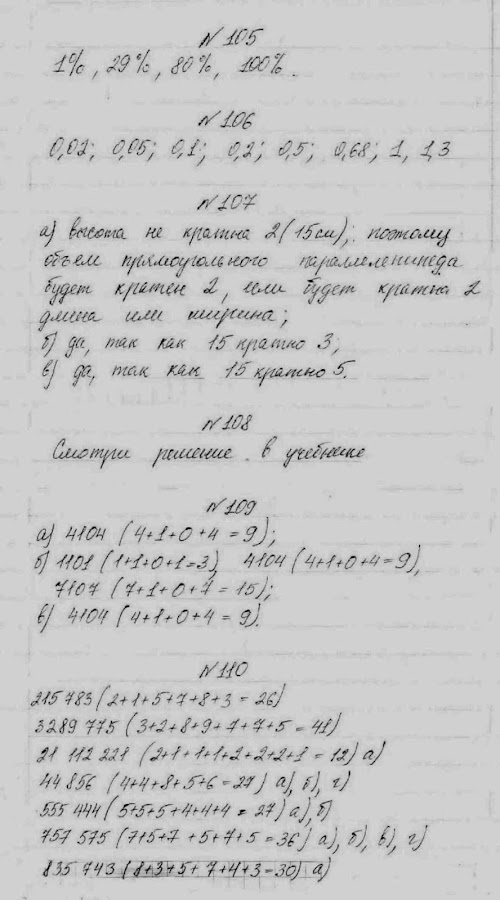 № 105
1%, 29%, 80%, 100%.
№ 106
0,01; 0,05; 0,1; 0,2; 0,5; 0,68; 1, 1,3
№ 107
а) высота не кратна 2 (15 см); поэтому
объем прямоугольного параллелепипеда
будет кратен 2, если будет кратна 2
длина или ширина;
б) да, так как 15 кратно 3;
в) да, так как 15 кратно 5.
№ 108
Смотри решение в учебнике
№ 109
а) 4104 (4+1+0+4=9);
б) 1101 (1+1+0+1=3), 4104 (4+1+0+4=9),
7107 (7+1+0+7=15);
в) 4104 (4+1+0+4=9).
№ 110
215 783 (2+1+5+7+8+3=26)
3289 775 (3+2+8+9+7+7+5=41)
21 112 221 (2+1+1+1+2+2+2+1=12) а)
44 856 (4+4+8+5+6=27) а), б), г)
555 444 (5+5+5+4+4+4=27) а), б)
757 575 (7+5+7+5+7+5=36) а), б), в), г)
835 743 (8+3+5+7+4+3=30) а)